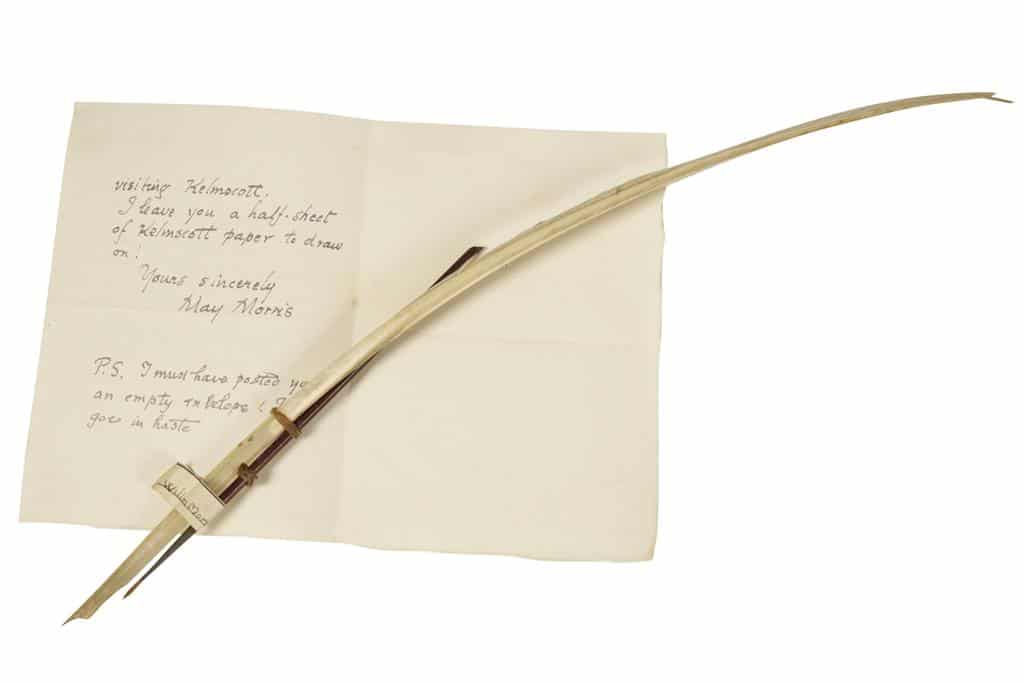 visiting Kelmscott.
I leave you a half-sheet
of Kelmscott paper to draw
on!
Yours sincerely
May Morris
P.S. I must have posted
an empty envelope!
goes in haste